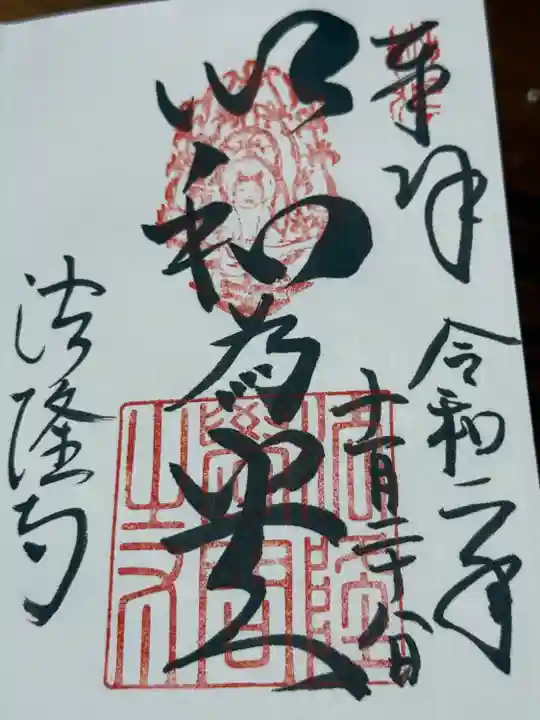 奉拝
令和二年
十一月二十八日
以和為貴
法隆寺